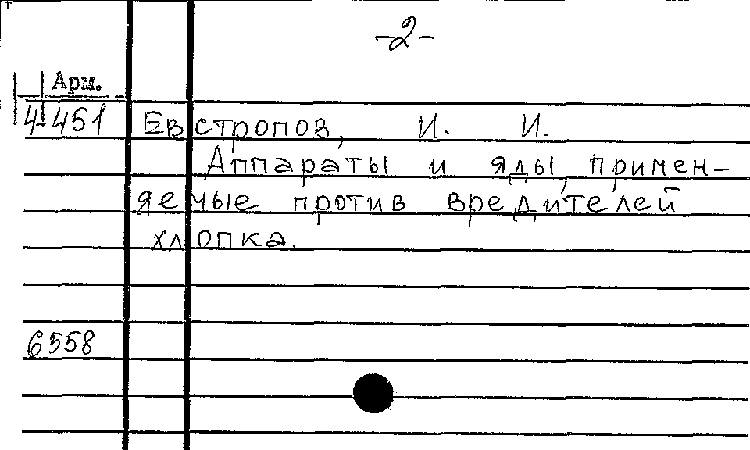 -2-
Арм.
4 451 Евстропов, И. И.
Аппараты и яды, примен-
яемые против вредителей
хлопка.
6558